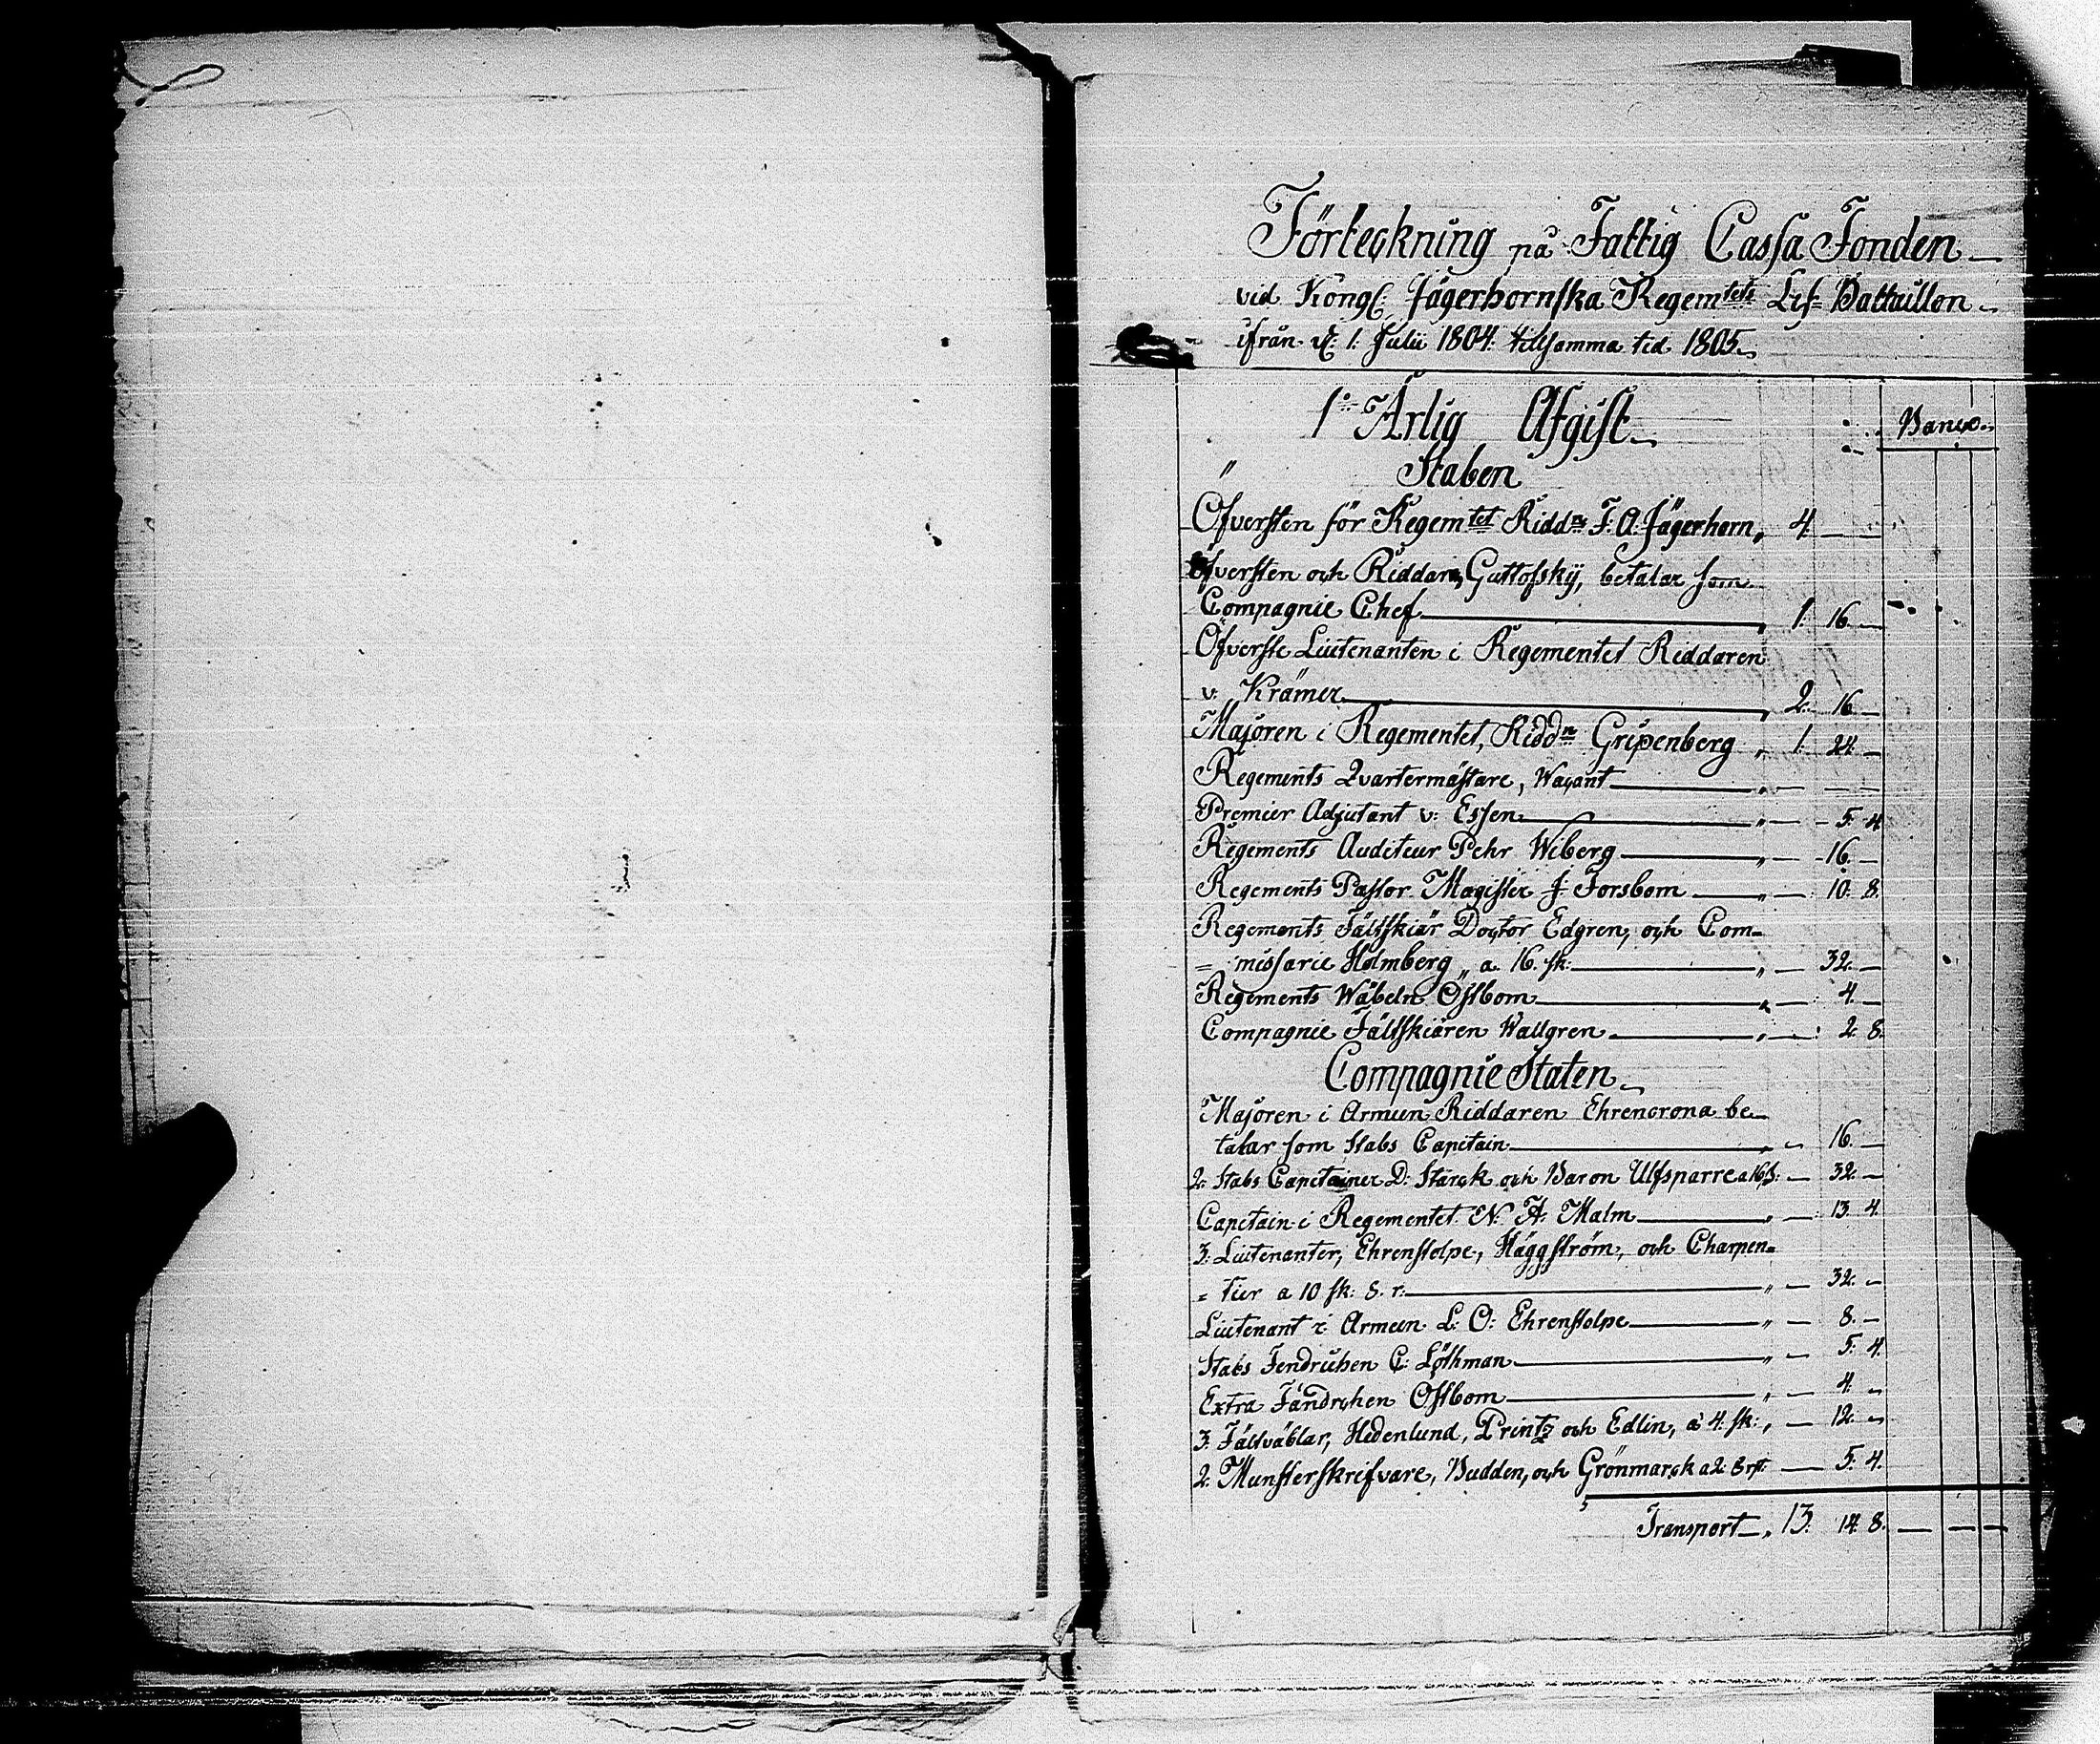 Förteckning på Fattig Cassa Fonden
vid Kongl: Jägerhornska Regemtets Lif Battaillon
ifrån d: 1. Julii 1804. till samma tid 1805.
1:o Årlig Afgift
Banco.
Staben
Öfversten för Regemtet Riddn F: A. Jägerhorn, 4. — —
Öfversten och Riddaren Guttofsky, betalar som
Compagnie Chef — „ 1. 16. —
Öfverste Liutenanten i Regementet Riddaren
v: Krämer — „ 2. 16. —
Majoren i Regementet, Riddn Gripenberg „ 1. 24. —
Regements Qvartermästare, Wacant — „ — — —
Premier Adjutant v: Essen — „ — 5. 4
Regements Auditeur Pehr Wiberg — „ — 16. —
Regements Pastor Magister J: Forsbom — „ — 10. 8.
Regements Fältskiär Doctor Edgren, och Com-
= missarie Holmberg „ a 16. sk: — „ — 32. —
Regements Wäbeln Ostbom — „ — 4. —
Compagnie Fältskiären Wallgren — „ — 2. 8.
Compagnie Staten
Majoren i Armeen Riddaren Ehrencrona be-
talar som Stabs Capitain — „ — 16. —
2. Stabs Capitainer D: Starck och Baron Ulfsparre a 16 s: — 32. —
Capitain i Regementet N: A: Malm — „ — 13. 4.
3. Liutenanter, Ehrenstolpe, Häggström, och Charpen-
= tier a 10 sk: 8. r: — „ — 32. —
Liutenant i Armeen L: O: Ehrenstolpe — „ — 8. —
Stabs Fendrichen C: Löthman — „ — 5. 4.
Extra Fändrichen Ostbom — „ — 4. „
3. Fältväblar, Hedenlund, Printz och Edlin, à 4. sk: „ — 12. „
2. Munsterskrifvare, Budden, och Grönmarck a 2: 8 rst: — 5. 4.
Transport „ 13. 14. 8. — — —